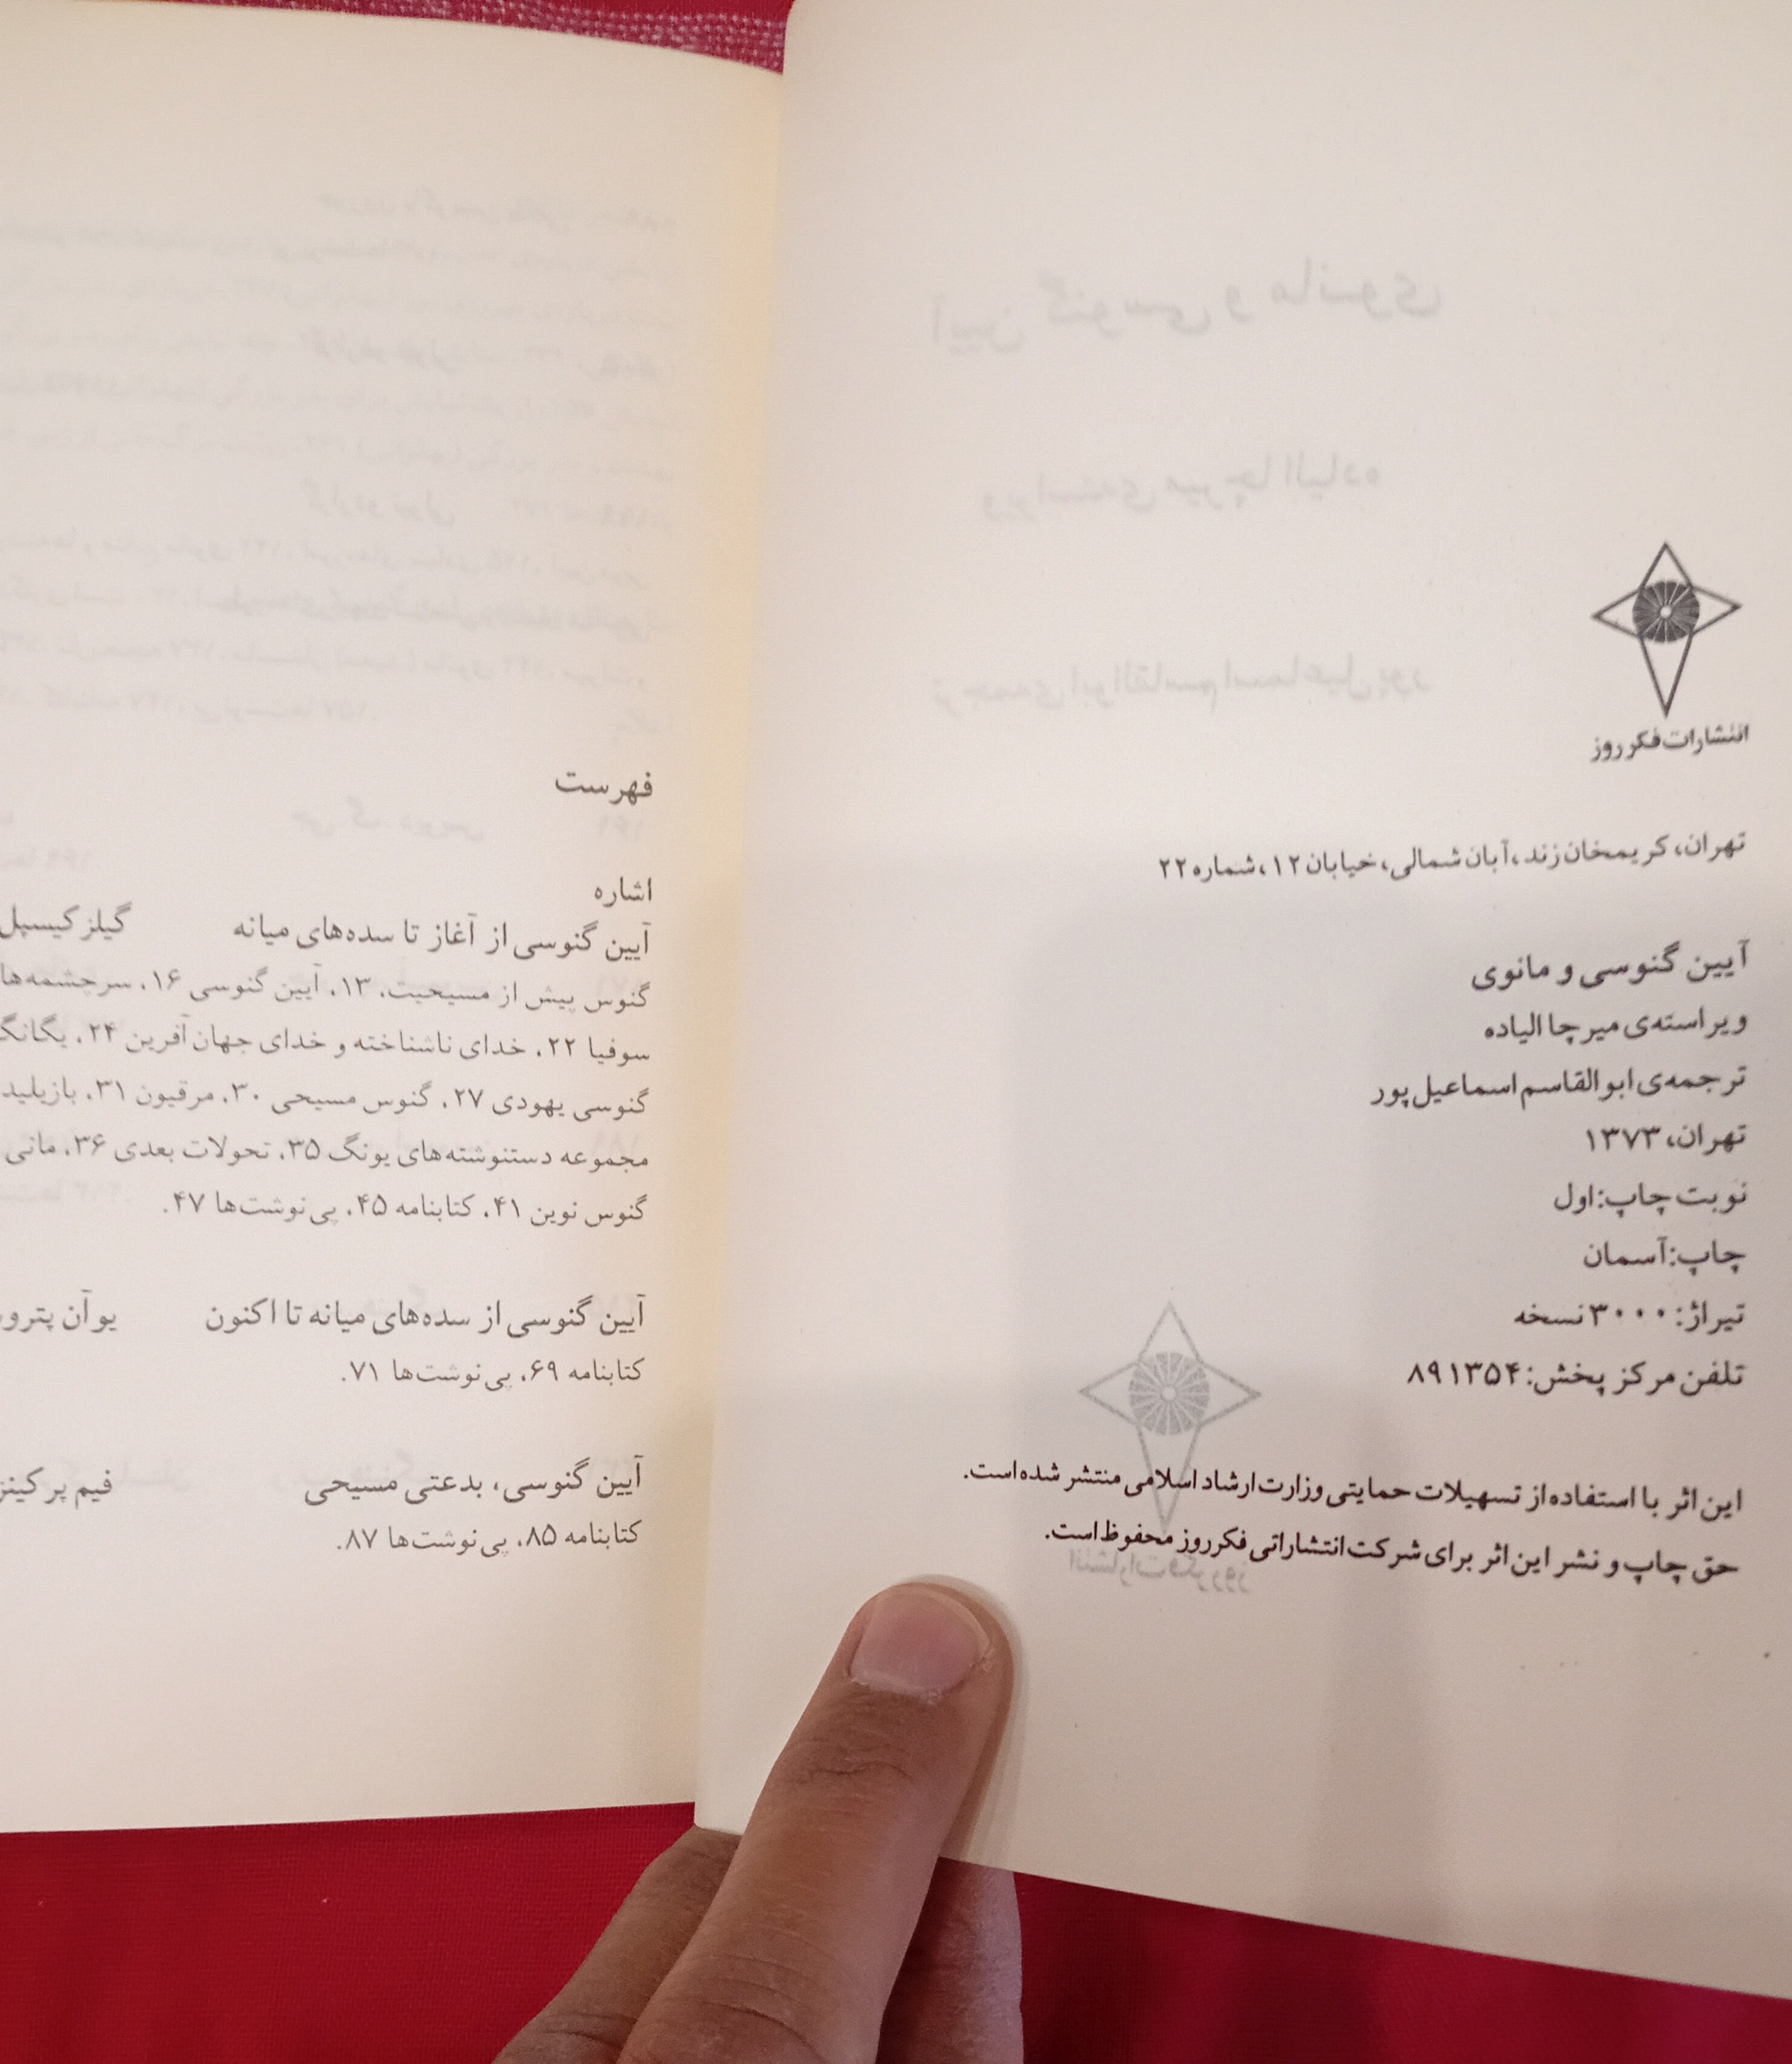 انتشارات فکر روز
تهران، کریمخان زند، آبان شمالی، خیابان ۱۲، شماره ۲۲
آیین گنوسی و مانوی
ویراسته‌ی میرچا الیاده
ترجمه‌ی ابوالقاسم اسماعیل‌پور
تهران، ۱۳۷۳
نوبت چاپ: اول
چاپ: آسمان
تیراژ: ۳۰۰۰ نسخه
تلفن مرکز پخش: ۸۹۱۳۵۴
این اثر با استفاده از تسهیلات حمایتی وزارت ارشاد اسلامی منتشر شده است.
حق چاپ و نشر این اثر برای شرکت انتشاراتی فکر روز محفوظ است.
فهرست
اشاره
آیین گنوسی از آغاز تا سده‌های میانه گیلز کیسپل
گنوس پیش از مسیحیت، ۱۳، آیین گنوسی ۱۶، سرچشمه‌ها
سوفیا ۲۲، خدای ناشناخته و خدای جهان‌آفرین ۲۴،
گنوسی یهودی ۲۷، گنوس مسیحی ۳۰، مرقیون ۳۱،
مجموعه دستنوشته‌های یونگ ۳۵، تحولات بعدی ۳۶، مانی
گنوس نوین ۴۱، کتابنامه ۴۵، پی‌نوشت‌ها ۴۷.
آیین گنوسی از سده‌های میانه تا اکنون یوآن
کتابنامه ۶۹، پی‌نوشت‌ها ۷۱.
آیین گنوسی، بدعتی مسیحی فیم
کتابنامه ۸۵، پی‌نوشت‌ها ۸۷.